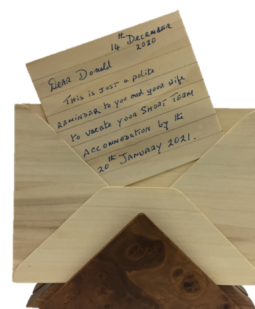 14th December
2020
Dear Donald
This is just a polite
reminder to you and your wife
to vacate your Short Term
Accommodation by the
20th January 2021.